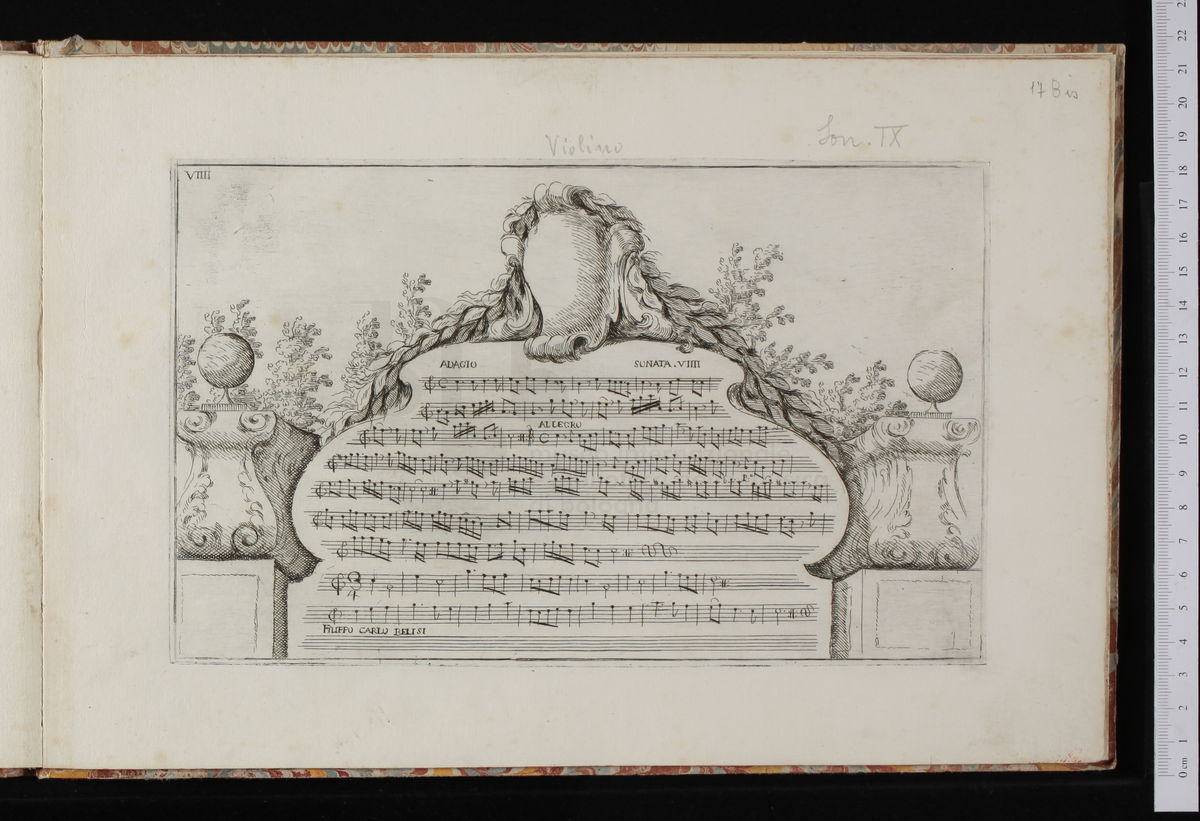 17 Bis
Violino
Son. IX
VIIII
ADAGIO
SONATA . VIIII
ALLEGRO
3
4
FILIPPO CARLO BELISI
0 cm 1 2 3 4 5 6 7 8 9 10 11 12 13 14 15 16 17 18 19 20 21 22